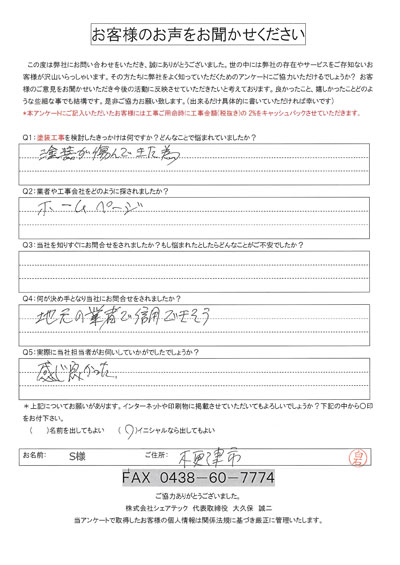 お客様のお声をお聞かせください
この度は弊社にお問い合わせをいただき、誠にありがとうございました。世の中には弊社の存在やサービスをご存知ないお
客様が沢山いらっしゃいます。その方たちに弊社をよく知っていただくためのアンケートにご協力いただけるでしょうか? お客
様のご意見をお聞かせいただき今後の活動に反映させていただきたいと考えております。良かったこと、嬉しかったことどのよ
うな些細な事でも結構です。是非ご協力お願い致します。(出来るだけ具体的に書いていただければ幸いです)
*本アンケートにご記入いただいたお客様には工事ご用命時に工事金額(税抜き)の 2%をキャッシュバックさせていただきます。
Q1:塗装工事を検討したきっかけは何ですか?どんなことで悩まれていましたか?
塗装が傷んできた為
Q2:業者や工事会社をどのように探されましたか?
ホームページ
Q3:当社を知りすぐにお問合せをされましたか?もし悩まれたとしたらどんなことがご不安でしたか?
Q4:何が決め手となり当社にお問合せをされましたか?
地元の業者で信用できそう
Q5:実際に当社担当者がお伺いしていかがでしたでしょうか?
感じ良かった
*上記についてお願いがあります。インターネットや印刷物に掲載させていただいてもよろしいでしょうか?下記の中から〇印
をお付下さい。
( )名前を出してもよい (〇)イニシャルなら出してもよい
お名前: S様 ご住所: 木更津市 白石
FAX 0438-60-7774
ご協力ありがとうございました。
株式会社シェアテック 代表取締役 大久保 誠二
当アンケートで取得したお客様の個人情報は関係法規に基づき厳正に管理いたします。